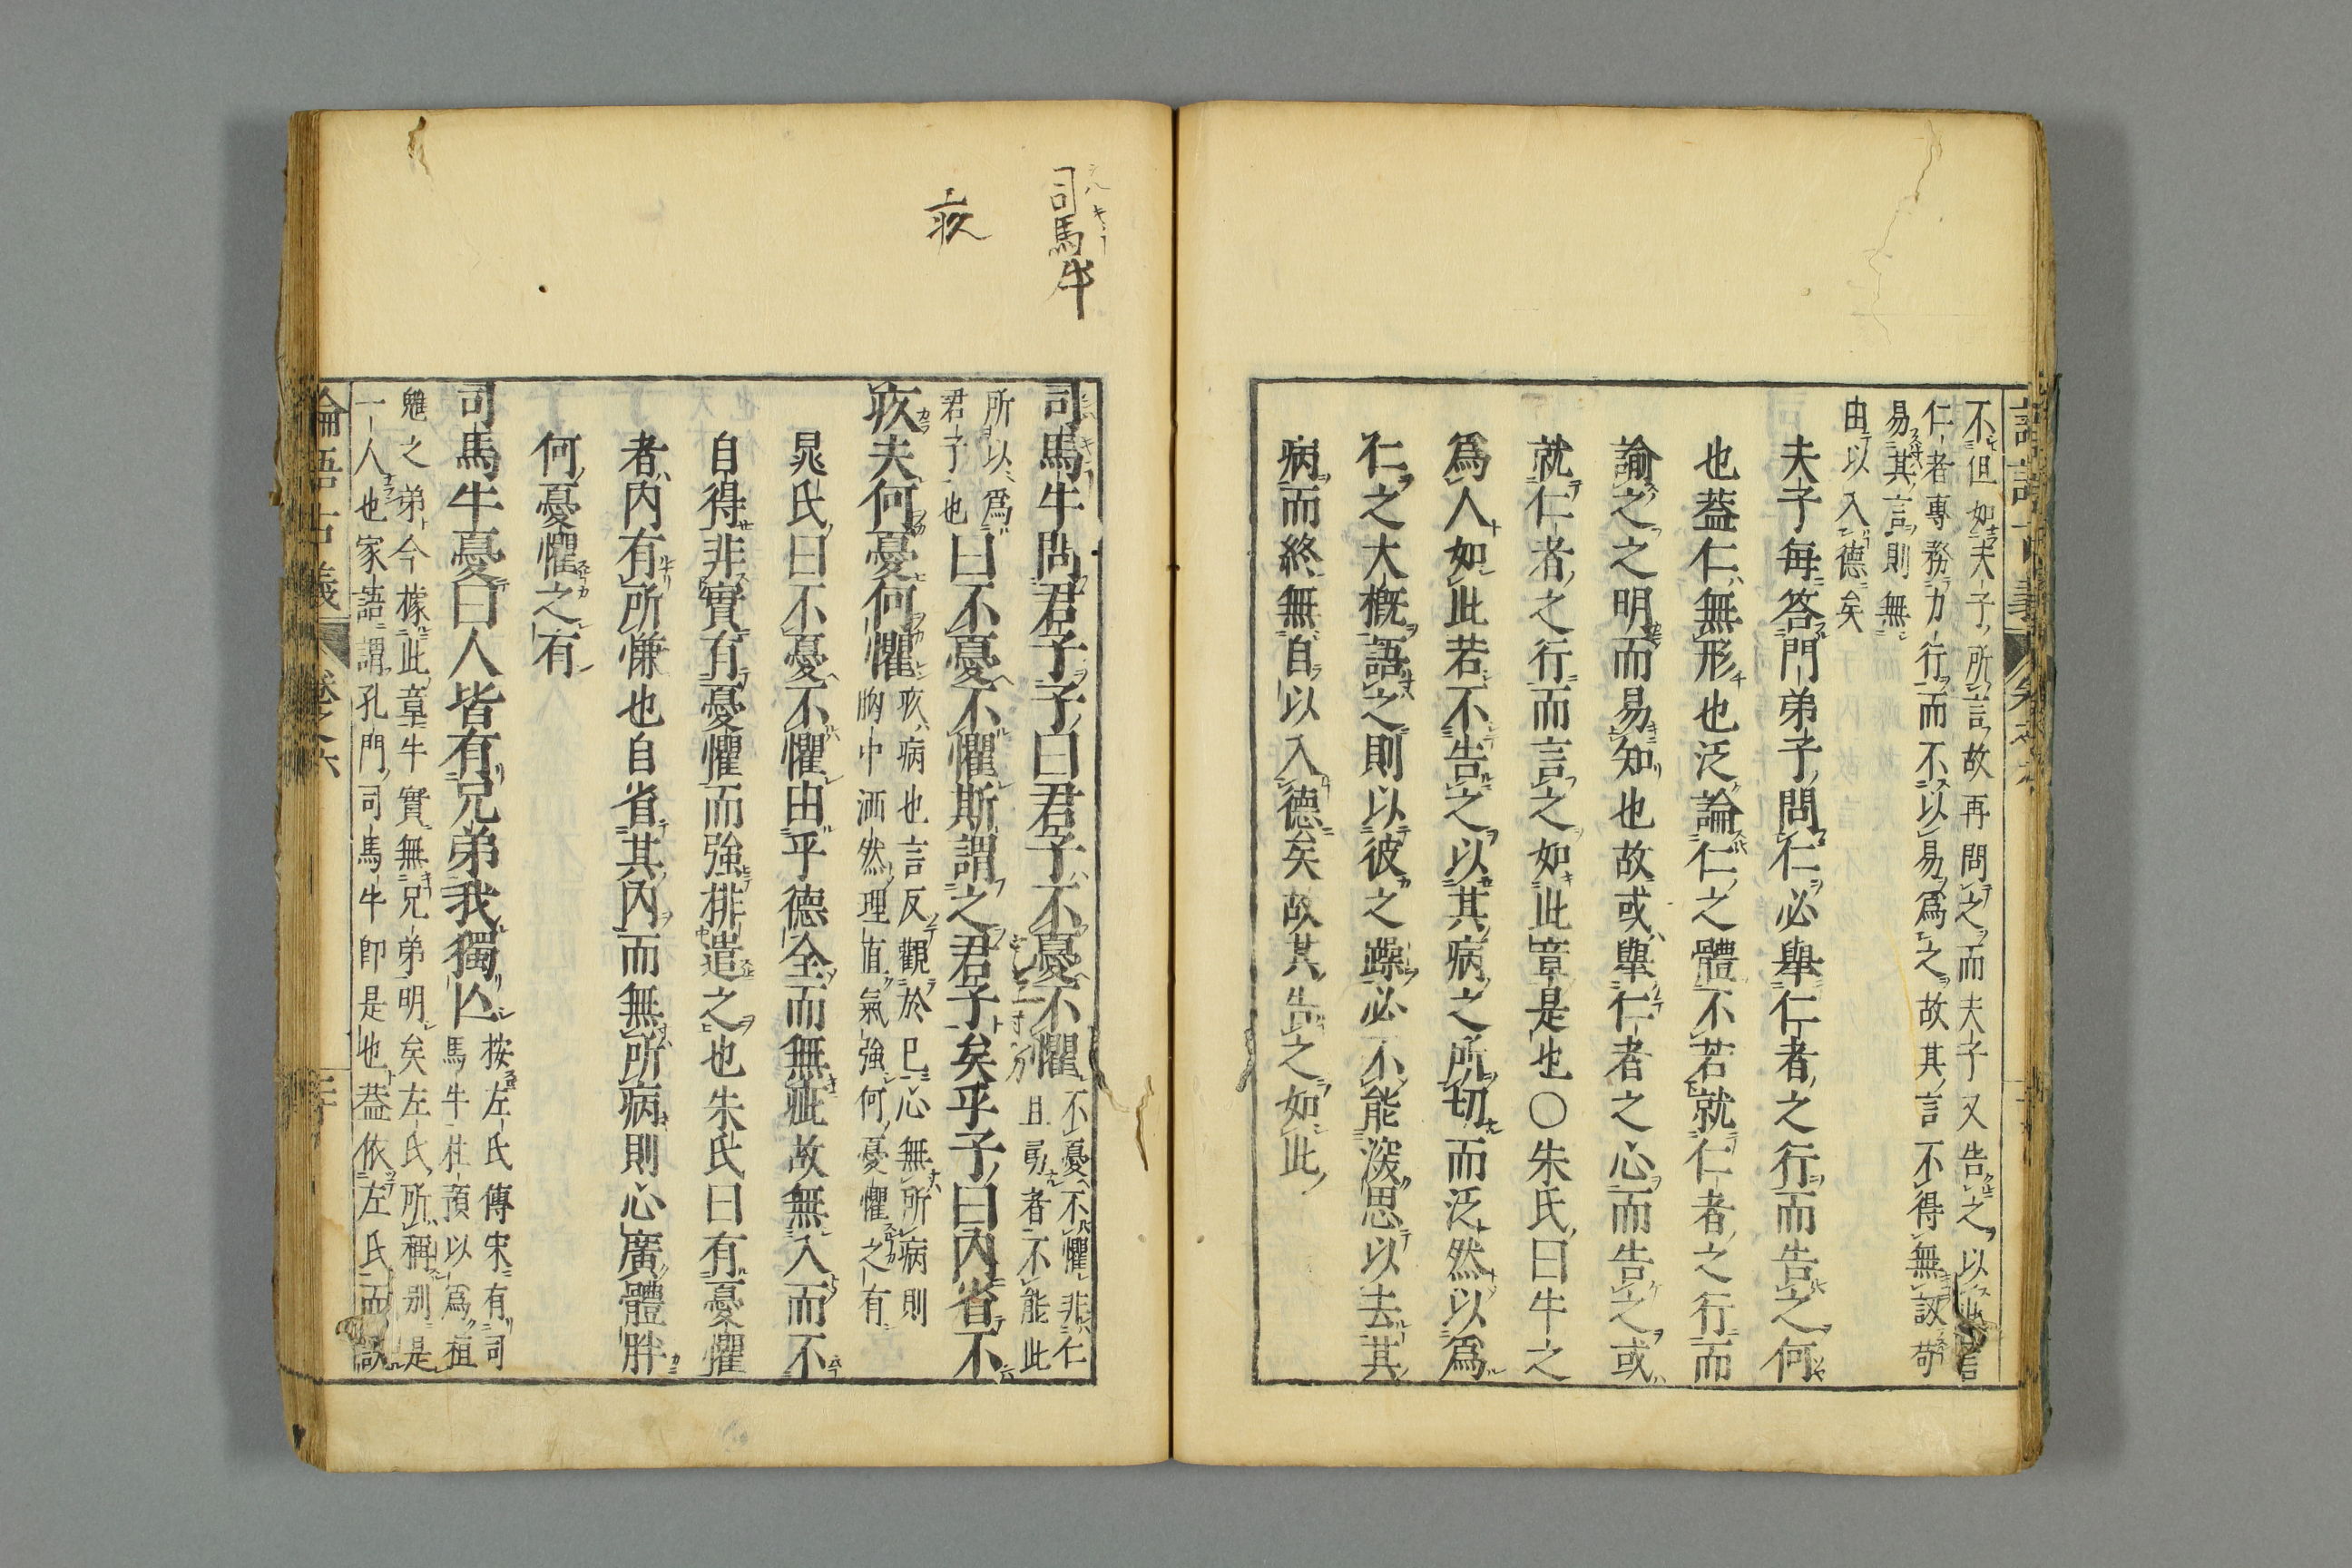 不但如夫子所言故再問之而夫子又告之以此言
仁者專務力行而不以易爲之故其言不得無訒苟
易其言則無
由以入德矣
夫子每答門弟子問仁必舉仁者之行而告之何
也葢仁無形也泛論仁之體不若就仁者之行而
諭之之明而易知也故或舉仁者之心而告之或
就仁者之行而言之如此章是也〇朱氏曰牛之
爲人如此若不告之以其病之所切而泛然以爲
仁之大槪語之則以彼之躁必不能深思以去其
病而終無自以入德矣故其告之如此
司馬牛
疚
司馬牛問君子子曰君子不憂不懼
不憂不懼非仁
且勇者不能此
所以爲
君子也
曰不憂不懼斯謂之君子矣乎子曰內省不
疚夫何憂何懼
疚病也言反觀於己心無所病則
胸中洒然理直氣強何憂懼之有
晁氏曰不憂不懼由乎德全而無疵故無入而不
自得非實有憂懼而強排遣之也朱氏曰有憂懼
者內有所慊也自省其內而無所病則心廣體胖
何憂懼之有
司馬牛憂曰人皆有兄弟我獨亾
按左氏傳宋有司
馬牛杜預以爲桓
魋之弟今據此章牛實無兄弟明矣左氏所稱別是
一人也家語謂孔門司馬牛卽是也葢依左氏而誤
論語古義 卷之六